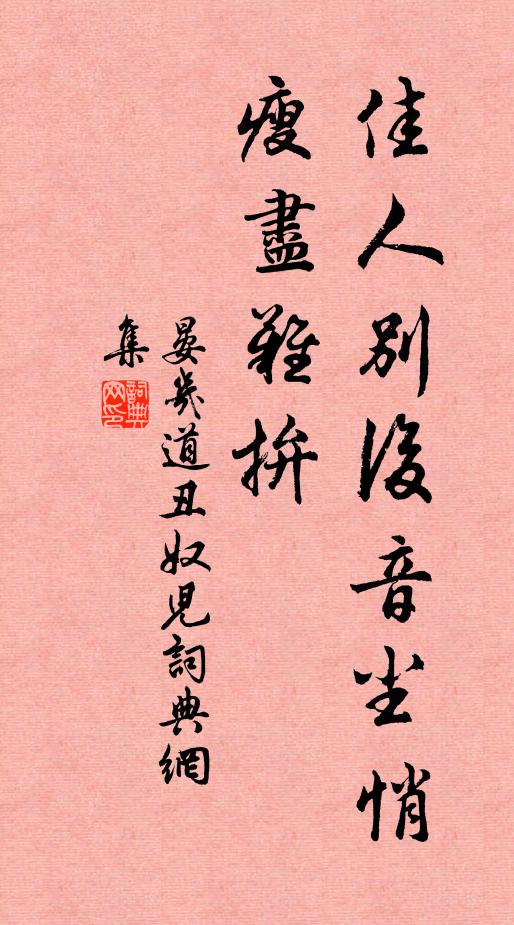 佳人別後音尘悄
瘦盡難拚
晏幾道丑奴兒詞典網
集
詞典網印